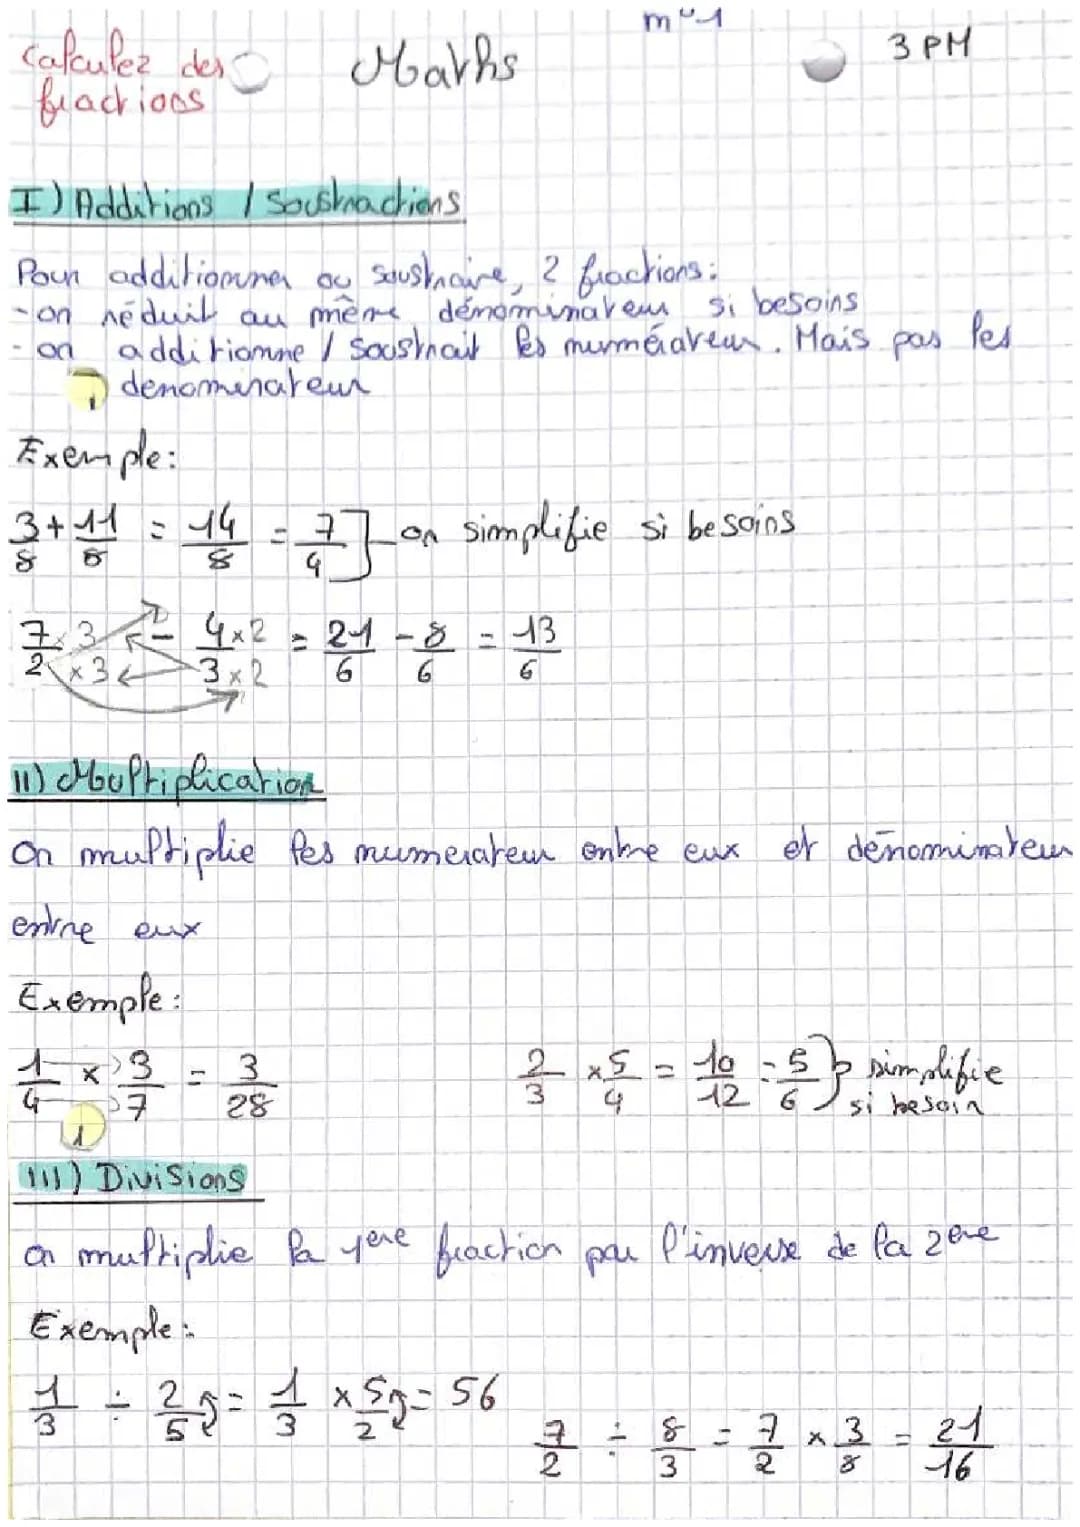 m°1
Calculez des fractions
Maths
3 PM
I) Additions / Soustractions
Pour additionner ou soustraire, 2 fractions:
- on réduit au même dénominateur si besoins
- on additionne / soustrait les numérateur. Mais pas les
denominateur
Exemple:
3/8 + 11/8 = 14/8 = 7/4 ] on simplifie si besoins
7×3/2×3 - 4×2/3×2 = 21/6 - 8/6 = 13/6
II) Multiplication
On multiplie les numerateur entre eux et dénominateur
entre eux
Exemple:
1/4 × 3/7 = 3/28
2/3 × 5/4 = 10/12 = 5/6 } simplifie si besoin
III) Divisions
on multiplie la 1ere fraction par l'inverse de la 2ere
Exemple:
1/3 ÷ 2/5 = 1/3 × 5/2 = 56
7/2 ÷ 8/3 = 7/2 × 3/8 = 21/16